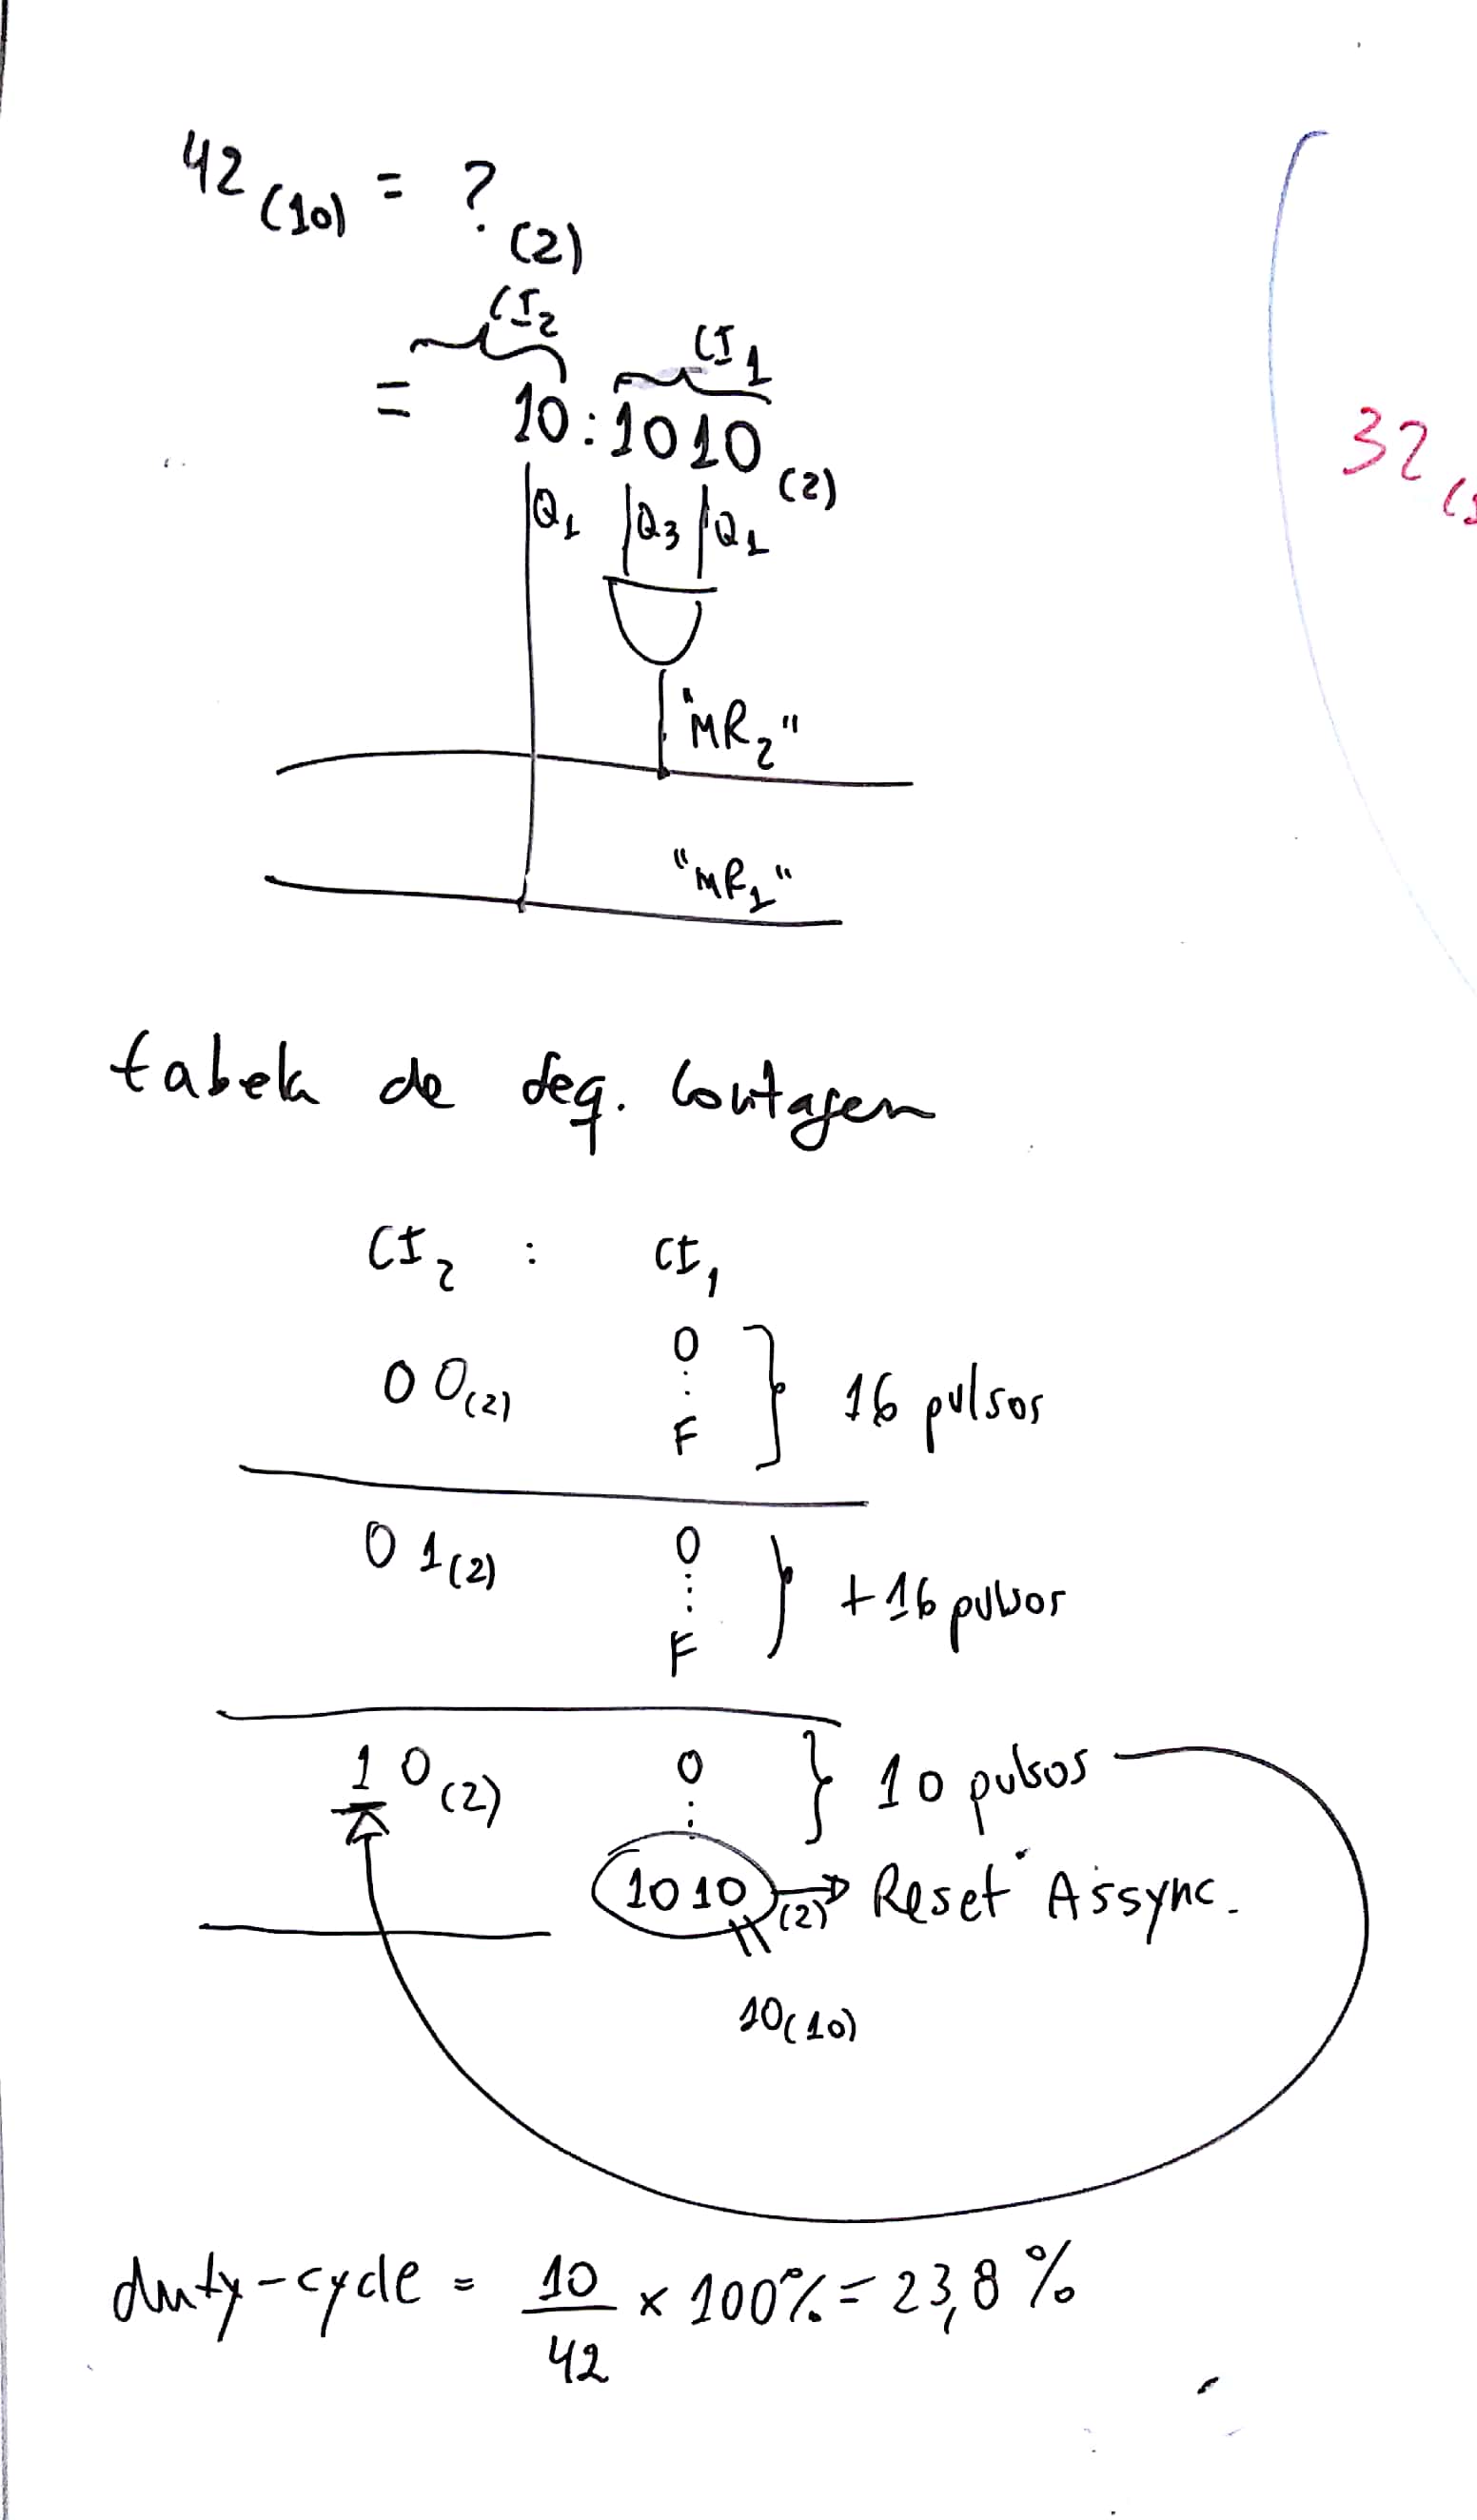 42 (10) = ? (2)
CI2 CI1
= 10:1010 (2)
Q1 Q3 Q1
"MR2"
"MR1"
tabela de seq. Contagem
CI2 : CI1
0
00(2) ⋮ 16 pulsos
F
01(2) 0
⋮ +16 pulsos
F
10(2) 0 10 pulsos
⋮
1010 (2) → Reset Assync.
10(10)
duty-cycle = 10/42 x 100% = 23,8%
32